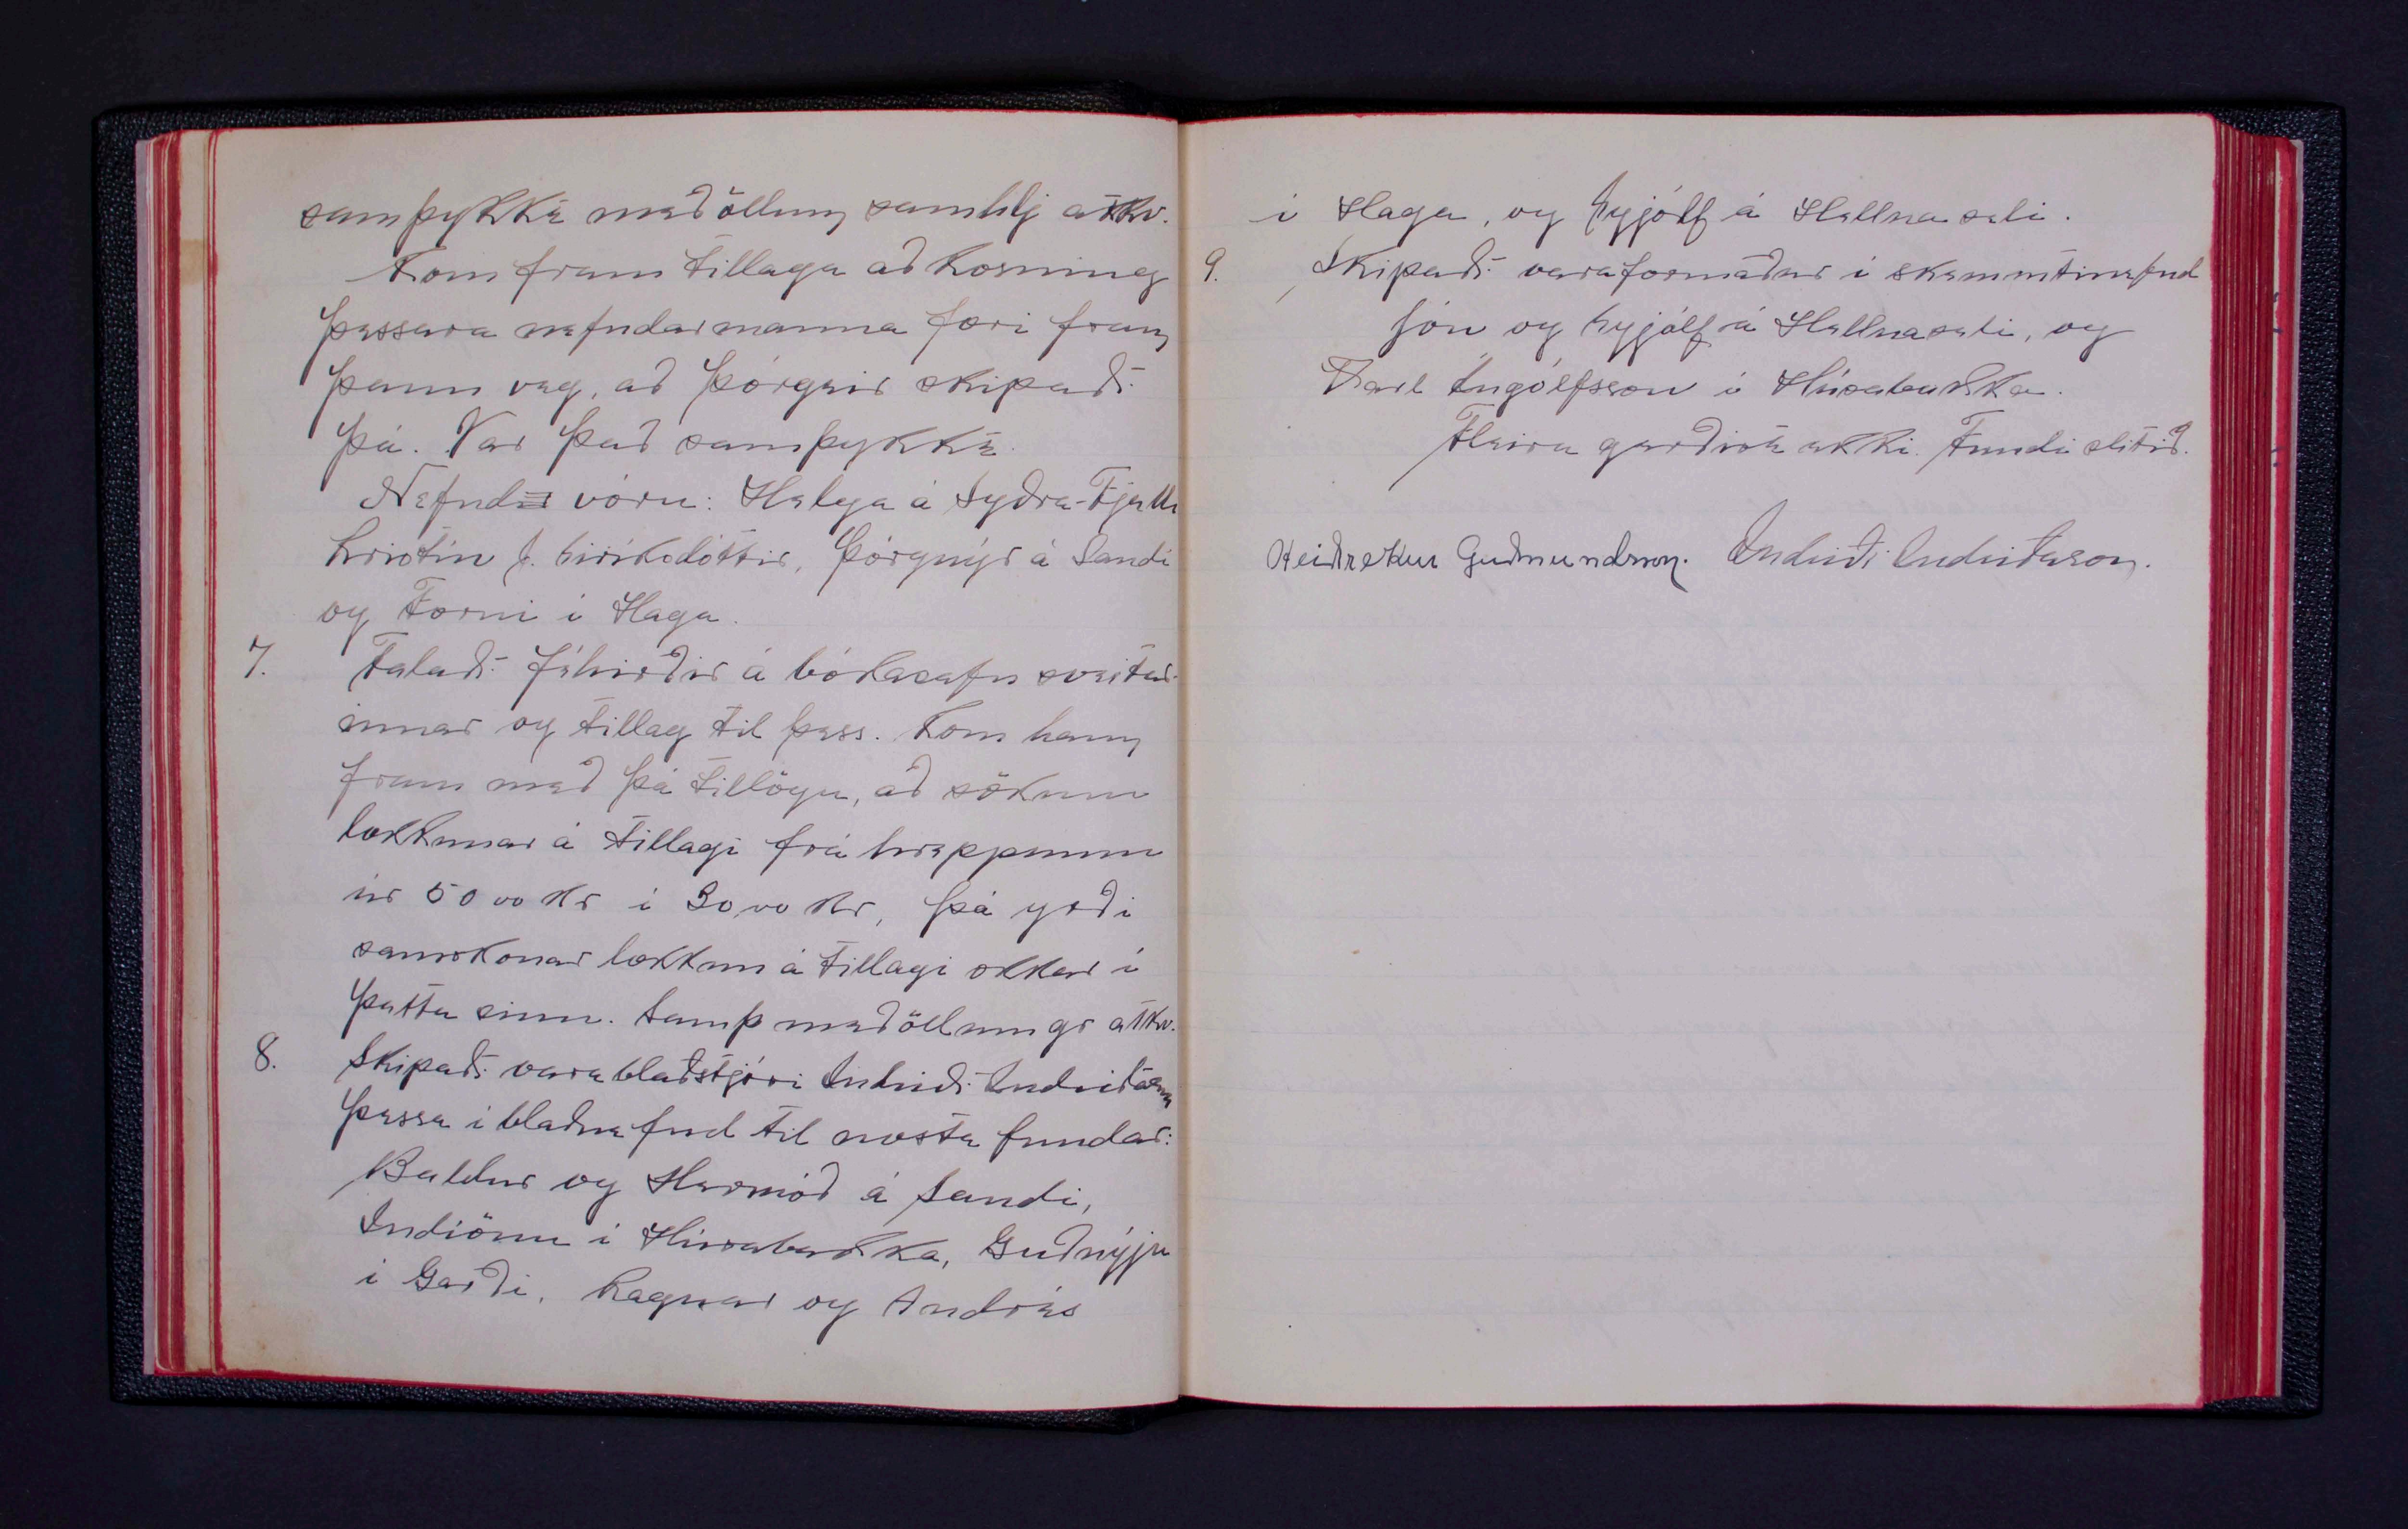 samþykkt með öllum samhlj atkv.
Kom fram tillaga að kosning
þessara nefndarmanna færi fram
þann veg, að Þórgeir skipaði
þá. Var það samþykkt.
Nefnd vóru: Helga á Syðra-Fjalli
Kristín J. Eiríksdóttir, Þórgnýr á Sandi
og Forni í Haga.
7. Talaði féhirðir á bókasafn sveitar-
innar og tillag til þess. Kom hann
fram með þá tillögu, að sökum
lækkunar á tillagi frá hreppnum
úr 50 00 kr í 30 00 kr, þá yrði
samskonar lækkun á tillagi okkar í
þetta sinn. Samþ með öllum gr atkv.
8. Skipaði vara blaðstjóri Indriði Indriðason
þessa í blaðnefnd til næsta fundar:
Baldur og Hermóð á Sandi,
Indíönu í Húsabakka, Guðnýju
í Garði, Ragnar og Andrés
í Haga, og Eyjólf á Hellnaseli.
9. Skipaði varaformaður í skemmtinefnd
Jón og Eyjólf á Hellnaseli, og
Karl Ingólfsson í Húsabakka.
Fleira gerðist ekki. Fundi slitið.
Heiðrekur Guðmundsson. Indriði Indriðason.